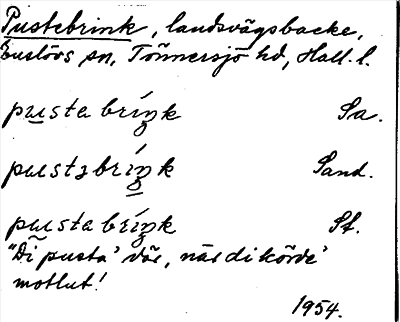 Pustebrink, landsvägsbacke,
Enslövs sn, Tönnersjö hd, Hall. l.
pusta bríŋk Sa.
pustəbríŋk Sand.
pusta bríŋk St.
"Di pusta' där, när di körde'
motlut!
1954.